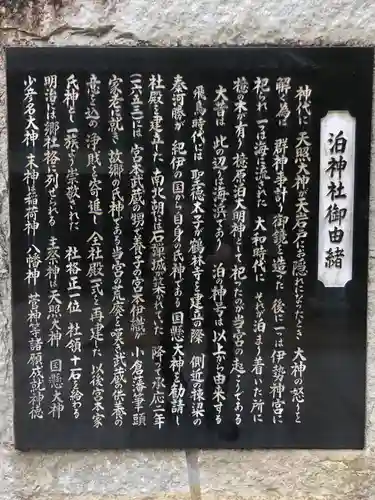 泊神社御由緒
神代に 天照大神が天岩戸にお隠れになったとき 大神の怒りを
解く為に 群神事計り御鏡を造った 後に一は伊勢神宮に
祀られ 一は海に流された 大和時代に それが泊まり着いた所に
檍の木が有り 檍原泊大明神として祀ったのが当宮の起こりである
大昔は 此の辺り海浜であり 泊の神号は以上から由来する
飛鳥時代には 聖徳太子が鶴林寺を建立の際 側近の
秦河勝が 紀伊の国から自身の氏神である 国懸大神を勧請し
社殿を建立した 南北朝は石弾城が築かれていた 降って承応二年
(一六五三)は 宮本武蔵の甥で養子の宮本伊織が 小倉藩筆頭
家老に就き 故郷の氏神である当宮の荒廃を嘆き武蔵の供養の
意も込め 浄財を寄進し 全社殿一式を再建した 以後宮本家
氏神として 一族より崇敬された 社格正一位 社領十石を給わる
明治には郷社格に列せられる 主祭神は天照大神 国懸大神
少彦名大神 末神は稲荷神 八幡神 等諸願成就神徳